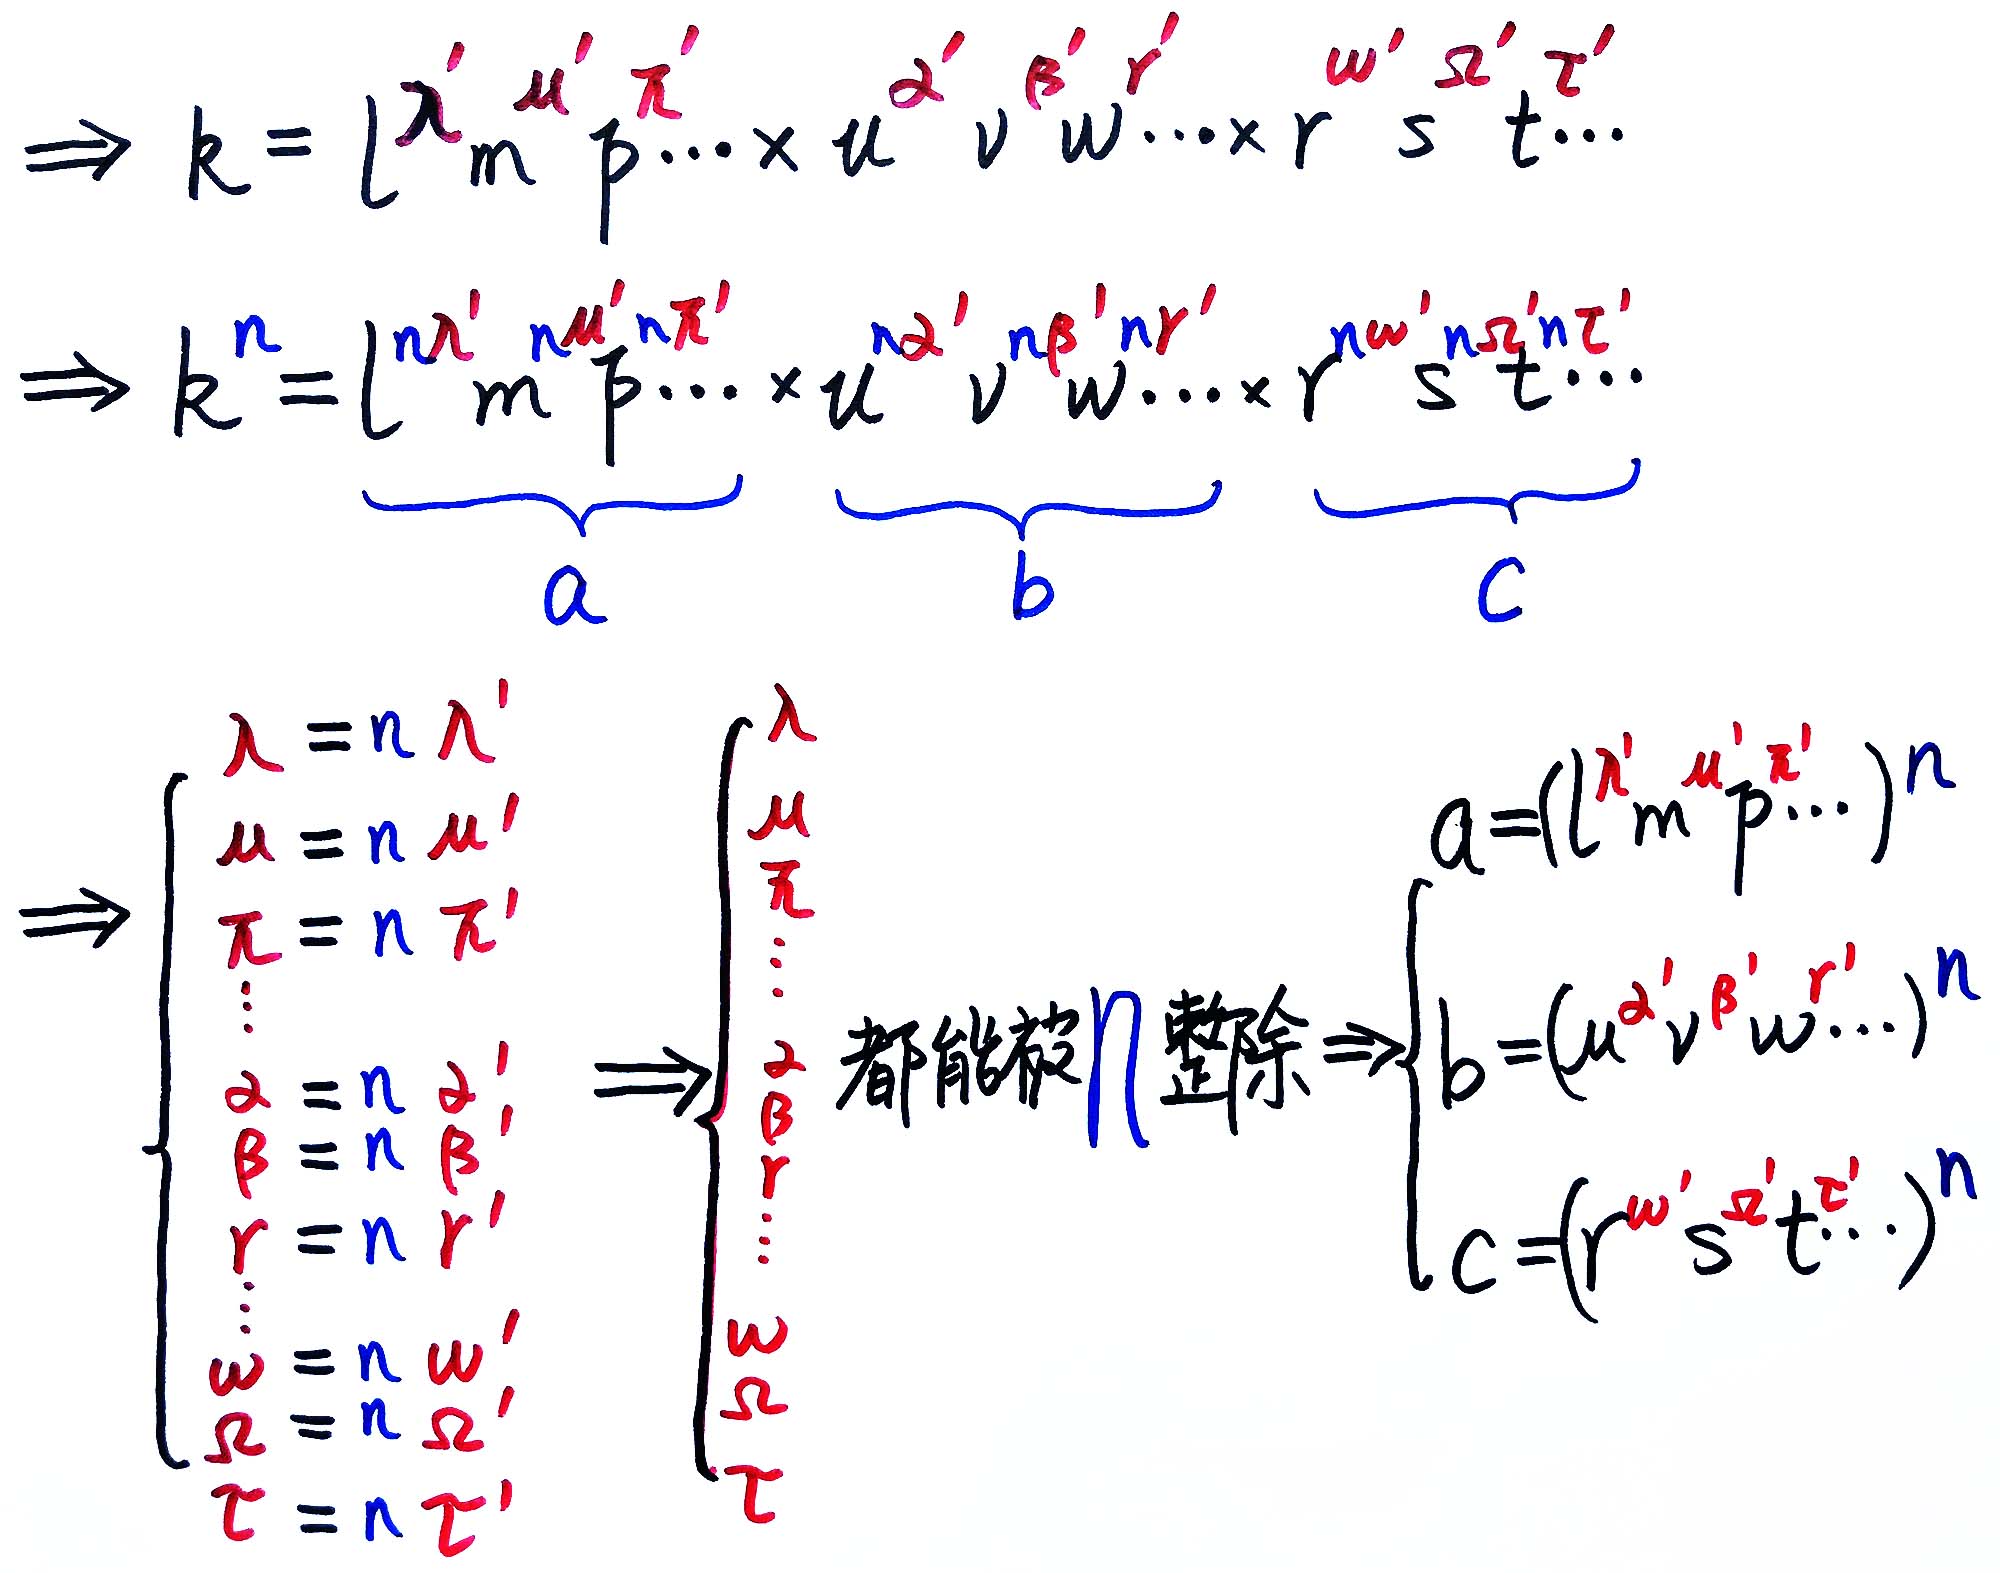 ⇒ k = l^λ' m^μ' p^π' ⋯ × u^α' v^β' w^γ' ⋯ × r^ω' s^Ω' t^τ' ⋯
⇒ k^n = l^nλ' m^nμ' p^nπ' ⋯ × u^nα' v^nβ' w^nγ' ⋯ × r^nω' s^nΩ' t^nτ' ⋯
a b c
⇒ { λ = n λ'
μ = n μ'
π = n π'
⋮
α = n α'
β = n β'
γ = n γ'
⋮
ω = n ω'
Ω = n Ω'
τ = n τ'
⇒ { λ
μ
π
⋮
α
β
γ
⋮
ω
Ω
τ
都能被n整除 ⇒ { a = (l^λ' m^μ' p^π' ⋯)^n
b = (u^α' v^β' w^γ' ⋯)^n
c = (r^ω' s^Ω' t^τ' ⋯)^n